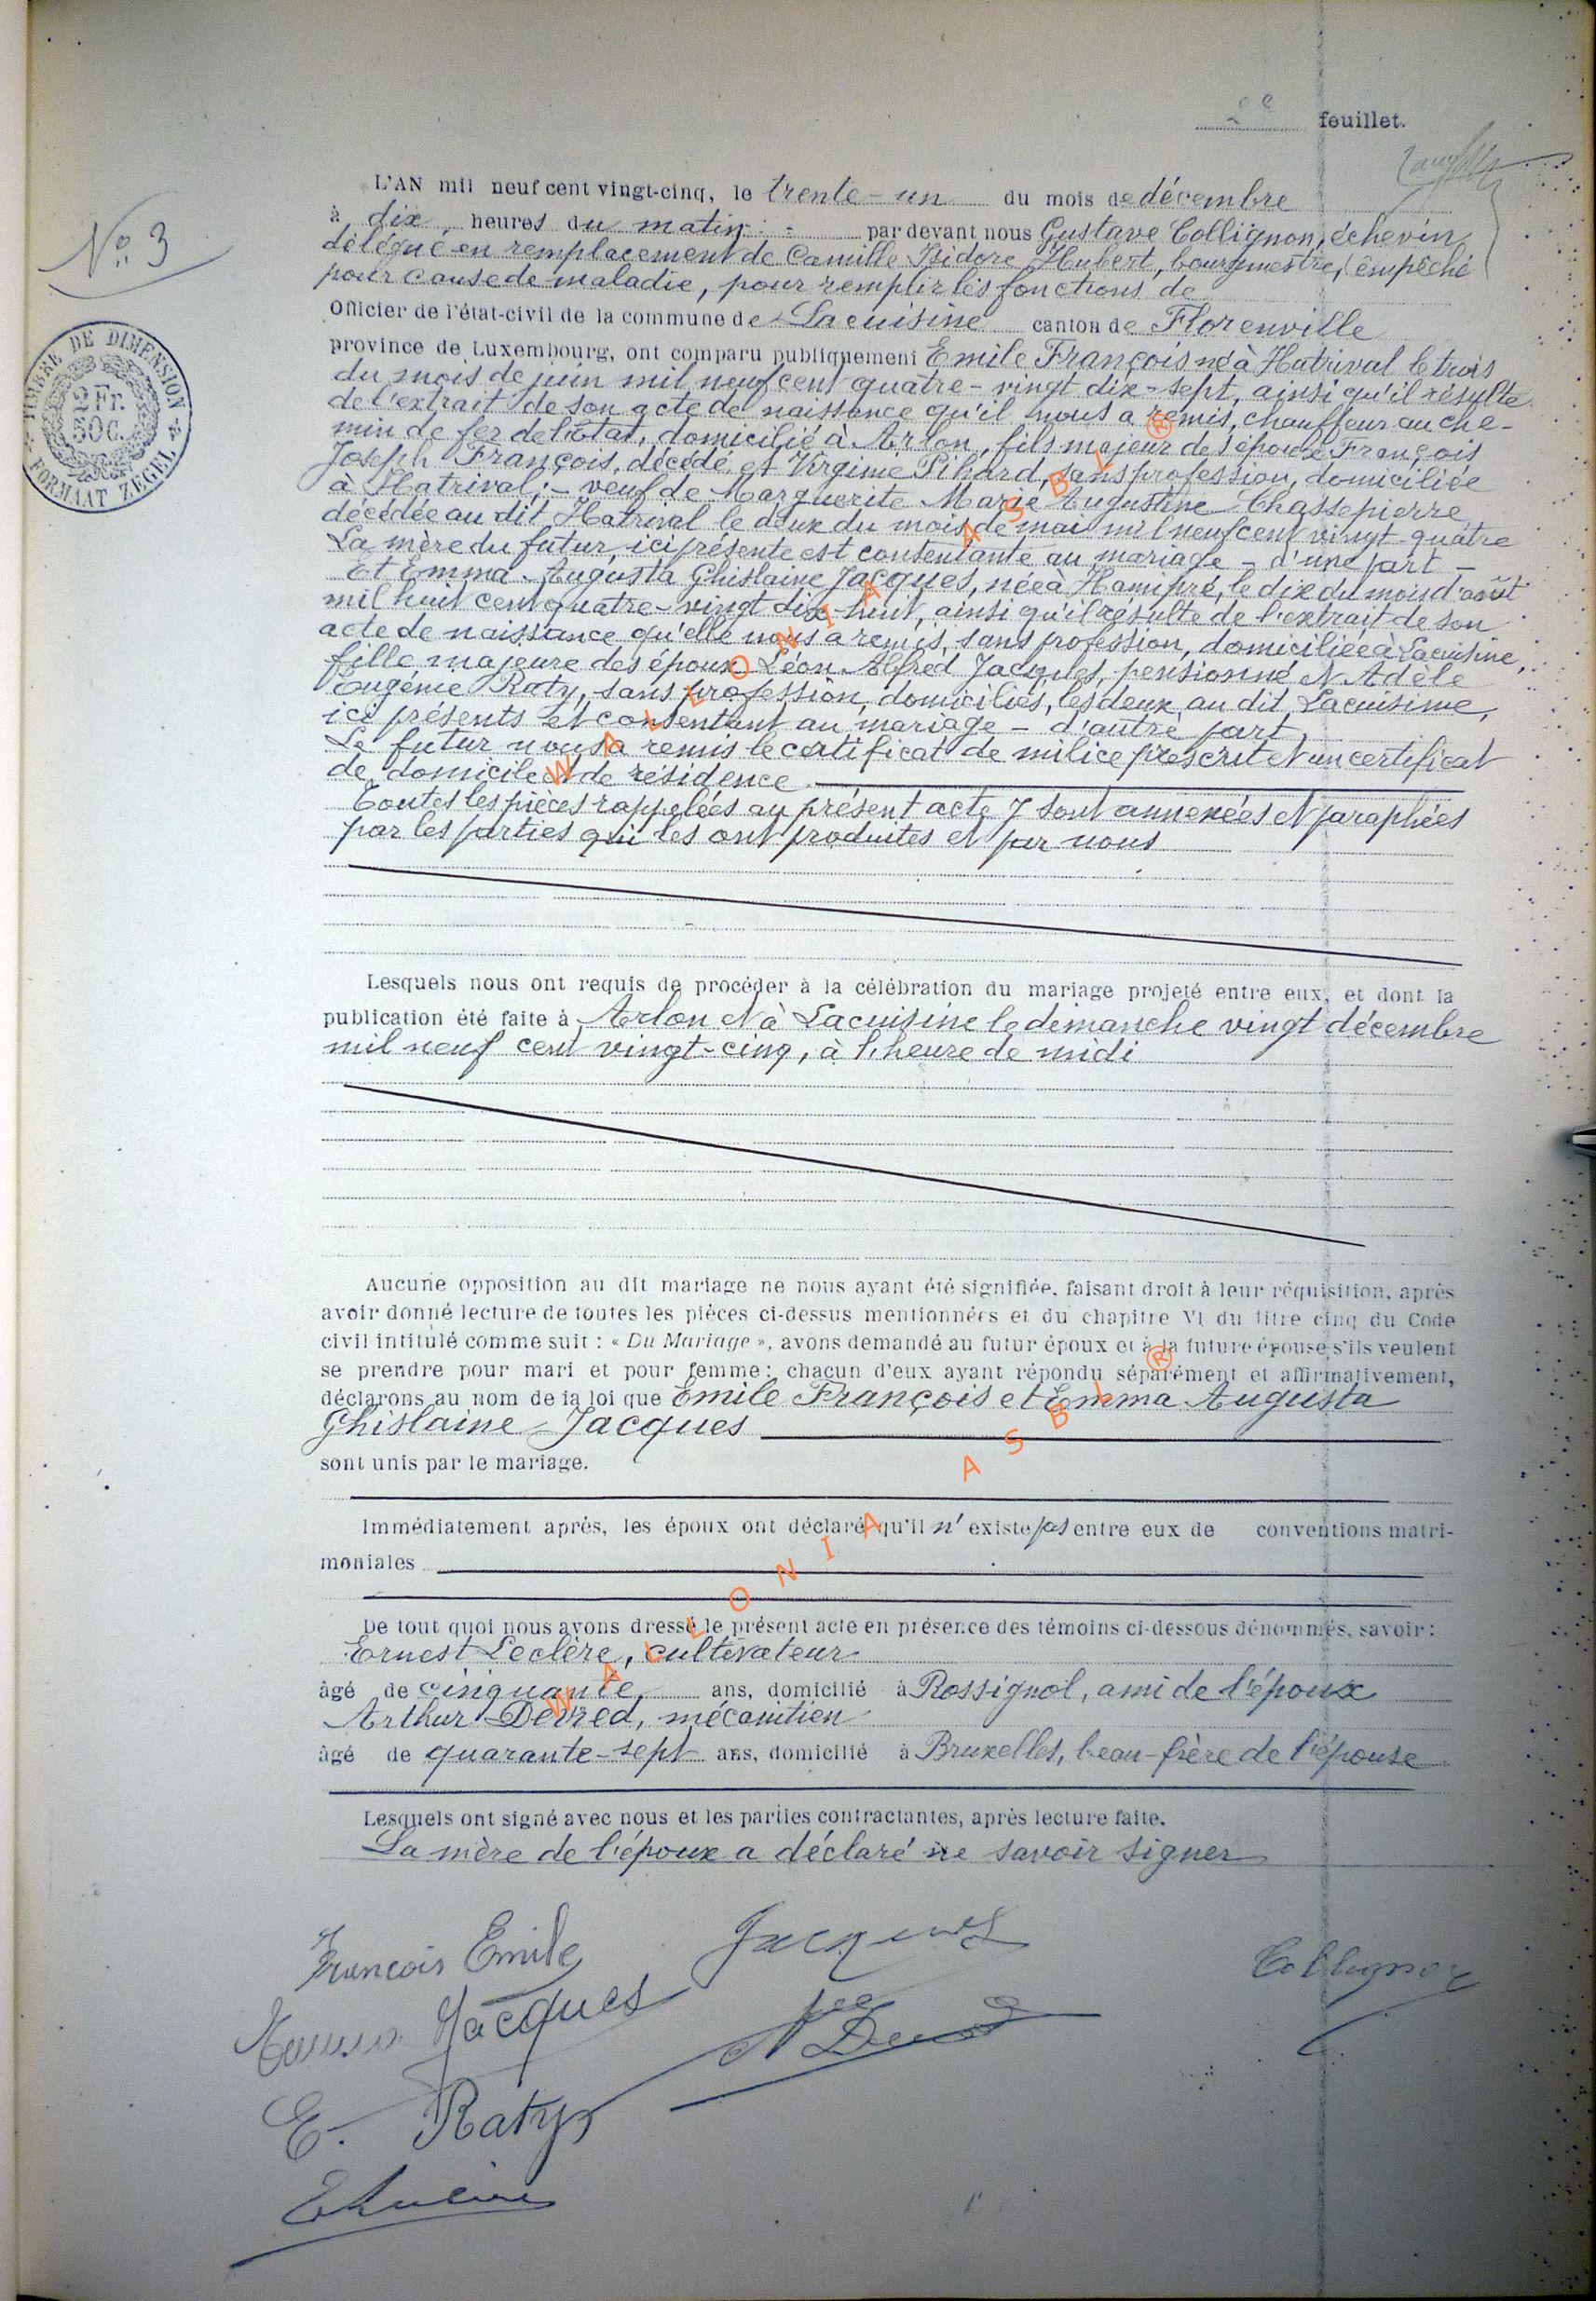 2e feuillet.
N° 3
TIMBRE DE DIMENSION
2 Fr.
50 C.
FORMAAT ZEGEL
L'AN mil neuf cent vingt-cinq, le trente-un du mois de décembre
à dix heures du matin par devant nous Gustave Collignon, échevin
délégué en remplacement de Camille Isidore Hubert, bourgmestre, empêché
pour cause de maladie, pour remplir les fonctions de
Officier de l'état-civil de la commune de Lacuisine canton de Florenville
province de Luxembourg, ont comparu publiquement Emile François né à Hatrival le trois
du mois de juin mil neuf cent quatre-vingt dix-sept, ainsi qu'il résulte
de l'extrait de son acte de naissance qu'il nous a remis, chauffeur au che-
min de fer de l'Etat, domicilié à Arlon, fils majeur des époux François
Joseph François, décédé et Virginie Pihard, sans profession, domiciliée
à Hatrival; - veuf de Marguerite Marie Augustine Chassepierre
décédée au dit Hatrival le deux du mois de mai mil neuf cent vingt-quatre
La mère du futur ici présente est consentante au mariage - d'une part -
Et Emma Augusta Ghislaine Jacques, née à Hamipré, le dix du mois d'août
mil huit cent quatre-vingt dix-huit, ainsi qu'il résulte de l'extrait de son
acte de naissance qu'elle nous a remis, sans profession, domiciliée à Lacuisine,
fille majeure des époux Léon Alfred Jacques, pensionné et Adèle
Eugénie Raty, sans profession, domiciliés, les deux au dit Lacuisine,
ici présents et consentant au mariage - d'autre part
Le futur nous a remis le certificat de milice prescrit et un certificat
de domicile et de résidence
Toutes les pièces rappelées au présent acte y sont annexées et paraphées
par les parties qui les ont produites et par nous
Lesquels nous ont requis de procéder à la célébration du mariage projeté entre eux, et dont la
publication été faite à Arlon et à Lacuisine le dimanche vingt décembre
mil neuf cent vingt-cinq, à l'heure de midi
Aucune opposition au dit mariage ne nous ayant été signifiée, faisant droit à leur réquisition, après
avoir donné lecture de toutes les pièces ci-dessus mentionnées et du chapitre VI du titre cinq du Code
civil intitulé comme suit : « Du Mariage », avons demandé au futur époux et à la future épouse s'ils veulent
se prendre pour mari et pour femme : chacun d'eux ayant répondu séparément et affirmativement,
déclarons au nom de la loi que Emile François et Emma Augusta
Ghislaine Jacques
sont unis par le mariage.
Immédiatement après, les époux ont déclaré qu'il n'existe pas entre eux de conventions matri-
moniales
De tout quoi nous avons dressé le présent acte en présence des témoins ci-dessous dénommés, savoir :
Ernest Leclère, cultivateur
âgé de cinquante, ans, domicilié à Rossignol, ami de l'époux
Arthur Devred, mécanitien
âgé de quarante-sept ans, domicilié à Bruxelles, beau-frère de l'épouse
Lesquels ont signé avec nous et les parties contractantes, après lecture faite.
La mère de l'époux a déclaré ne savoir signer
François Emile
Jacques
Collignon
Emma Jacques
E. Raty
WALLONIA ASBL ®
WALLONIA ASBL ®